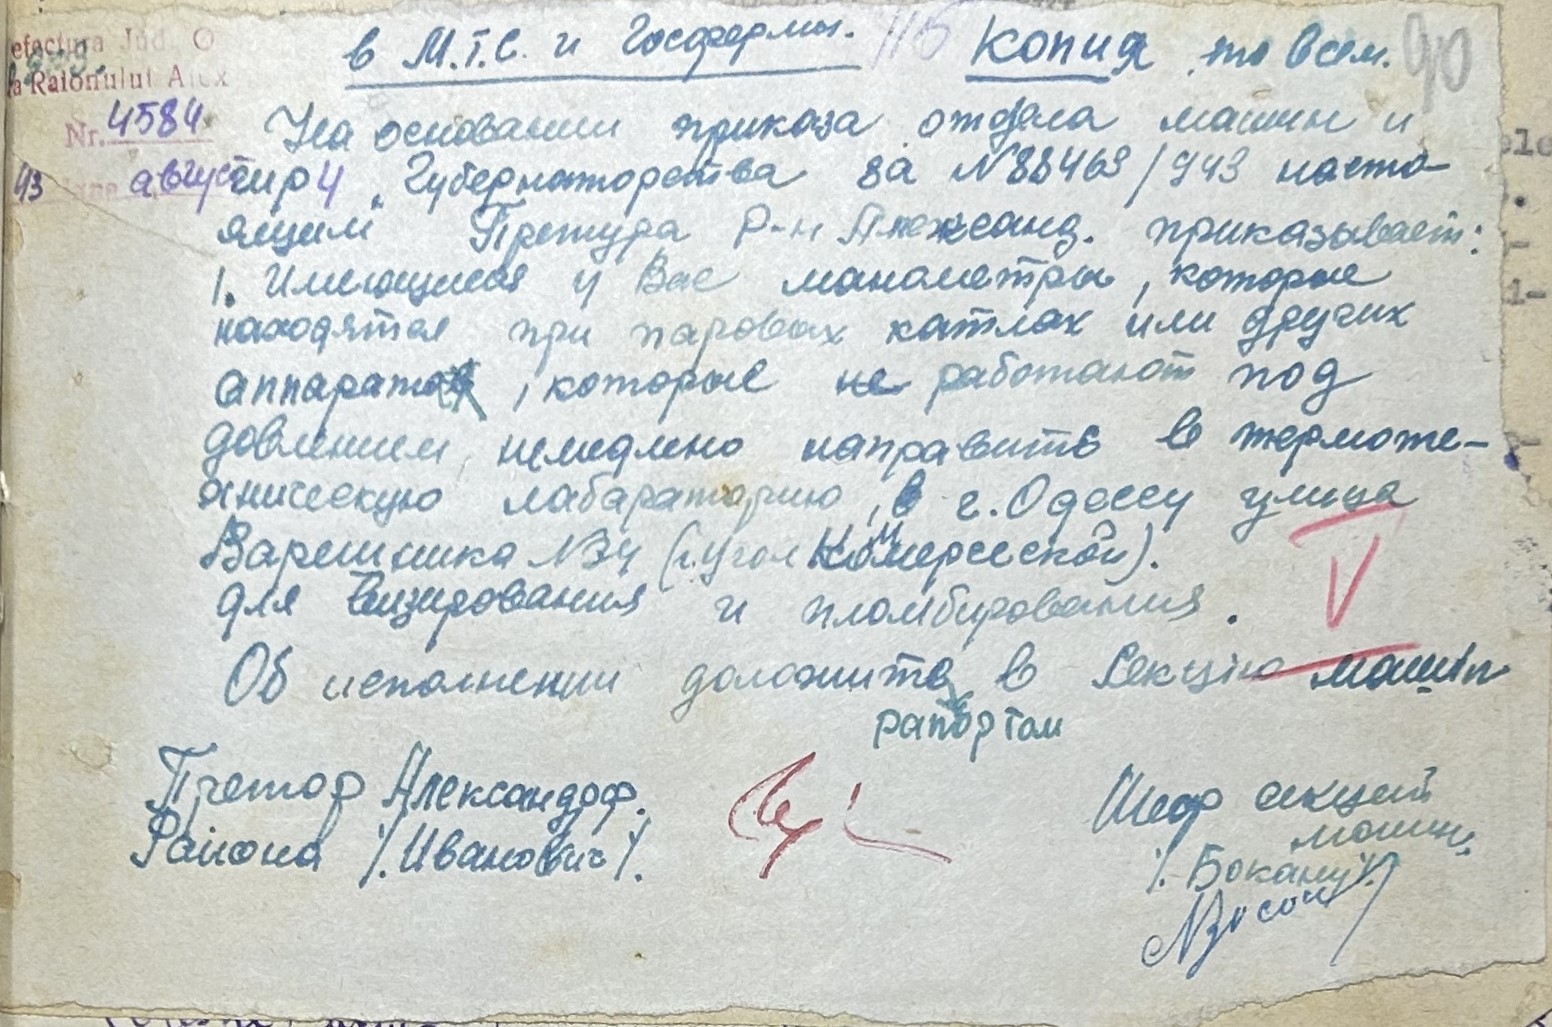 efectura Jud. O
a Raionului Alex
Nr. 4584
43 август 4
в М.Т.С. и Госфермы. 116 Копия по всем. 90
На основании приказа отдела машин и
тир " Губернаторства за N 88463/943 насто-
ящим Претура Р-н Александ. приказывает:
1. Имеющиеся у Вас манометры, которые
находятся при паровых катлах или других
аппаратов, которые не работают под
довлением, немедлено направить в термоте-
хническую лабараторию, в г. Одессу улица
N 34 (угол Комерсеской).
для визирования и пломбирования.
V
Об исполнении доложить в Секцию машин
рапортом
Претор Александроф.
Района /. Иванович /.
Шеф секций
машин.
/. Бокану /.